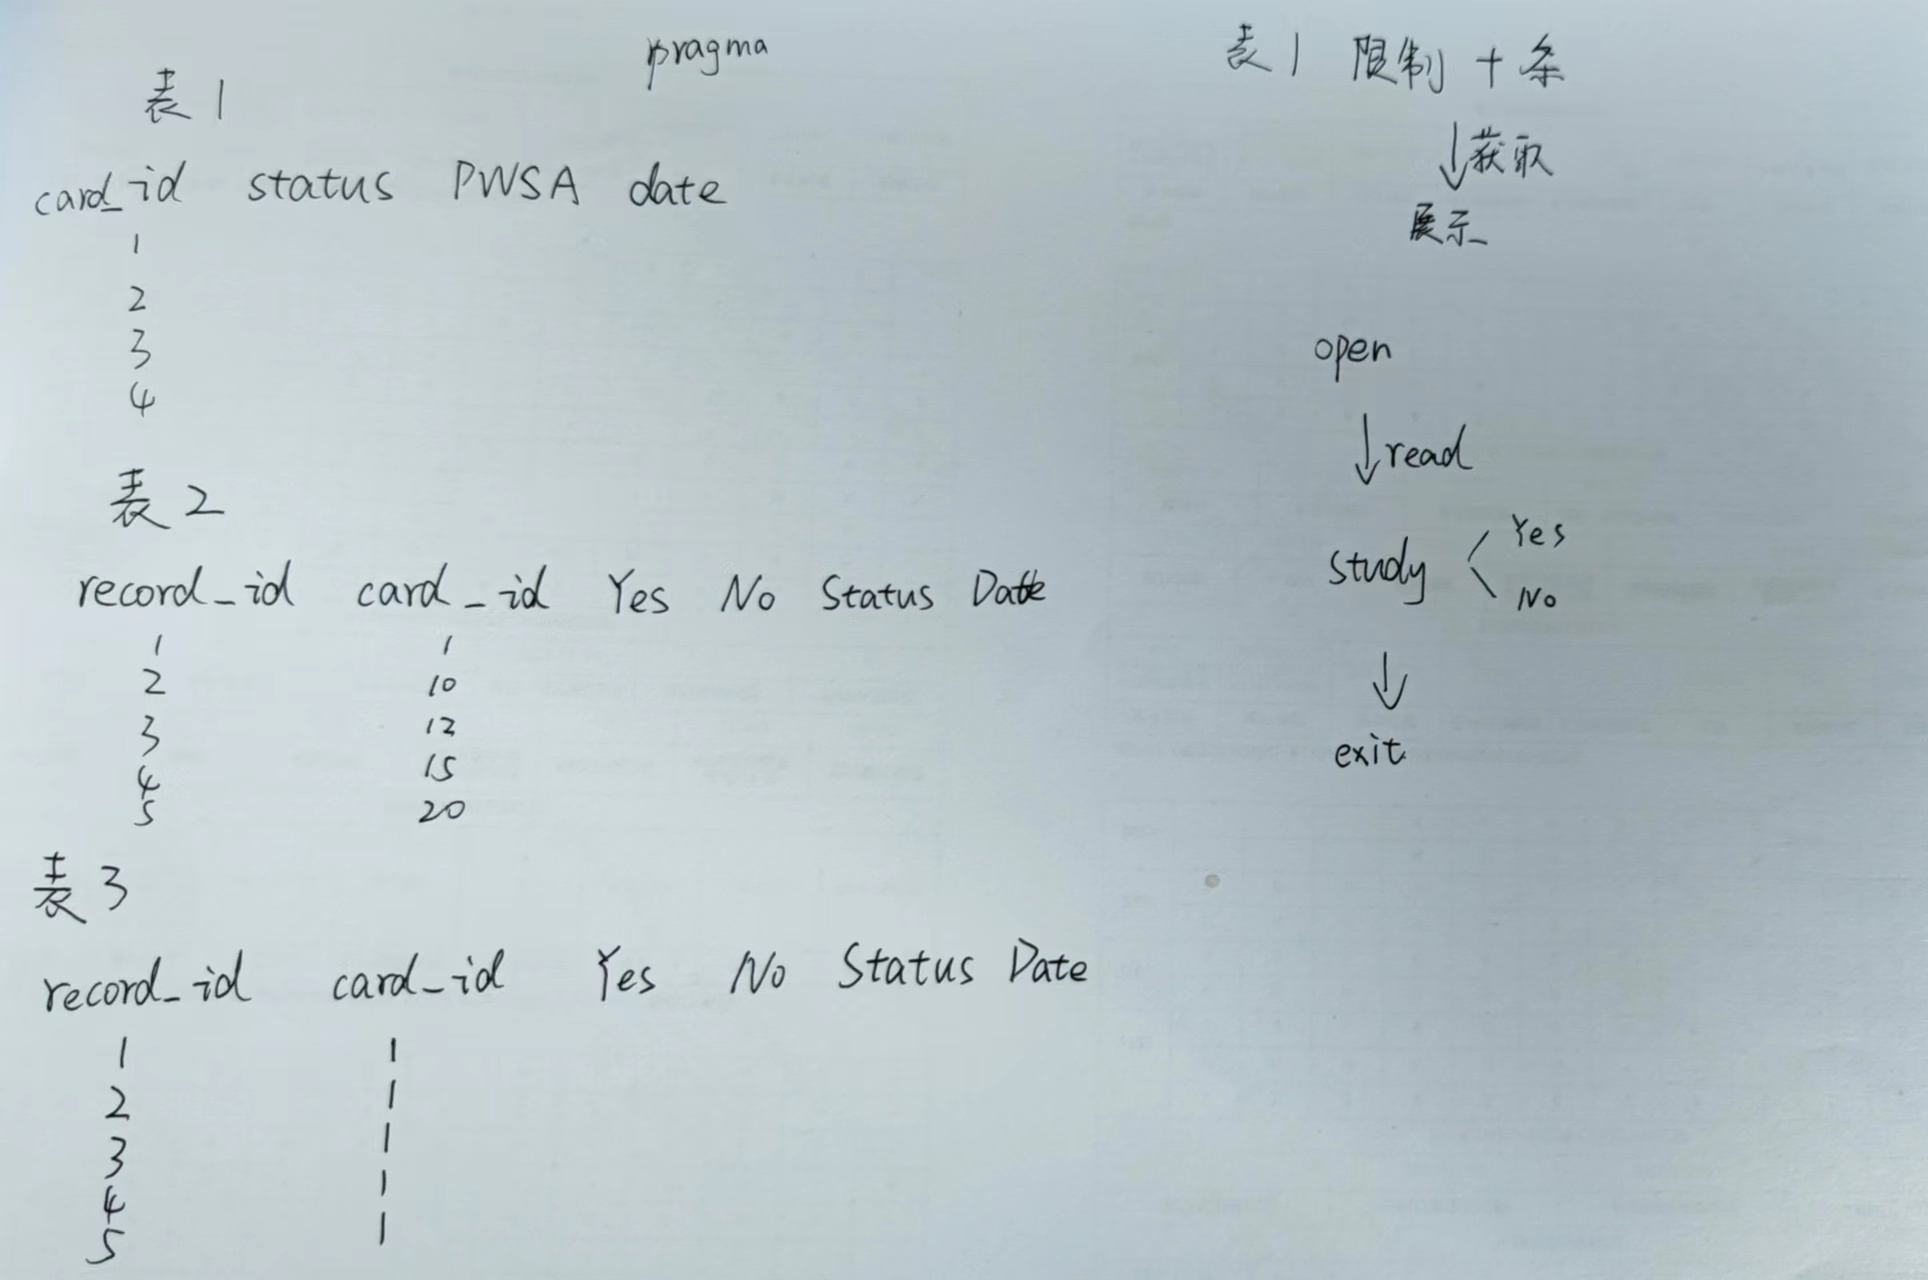 pragma
表1
card_id status PWSA date
1
2
3
4
表2
record_id card_id Yes No Status Date
1 1
2 10
3 12
4 15
5 20
表3
record_id card_id Yes No Status Date
1 1
2 1
3 1
4 1
5 1
表1 限制十条
获取
展示
open
read
study Yes
No
exit